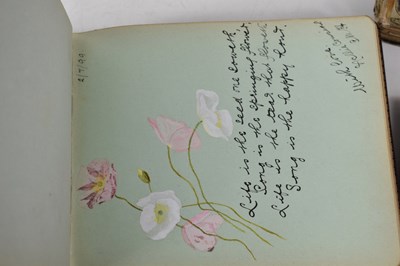 2/7/09
Life is the seed one soweth
Song is the springing flower,
Life is the tear that floweth
Song is the happy hour.
With love